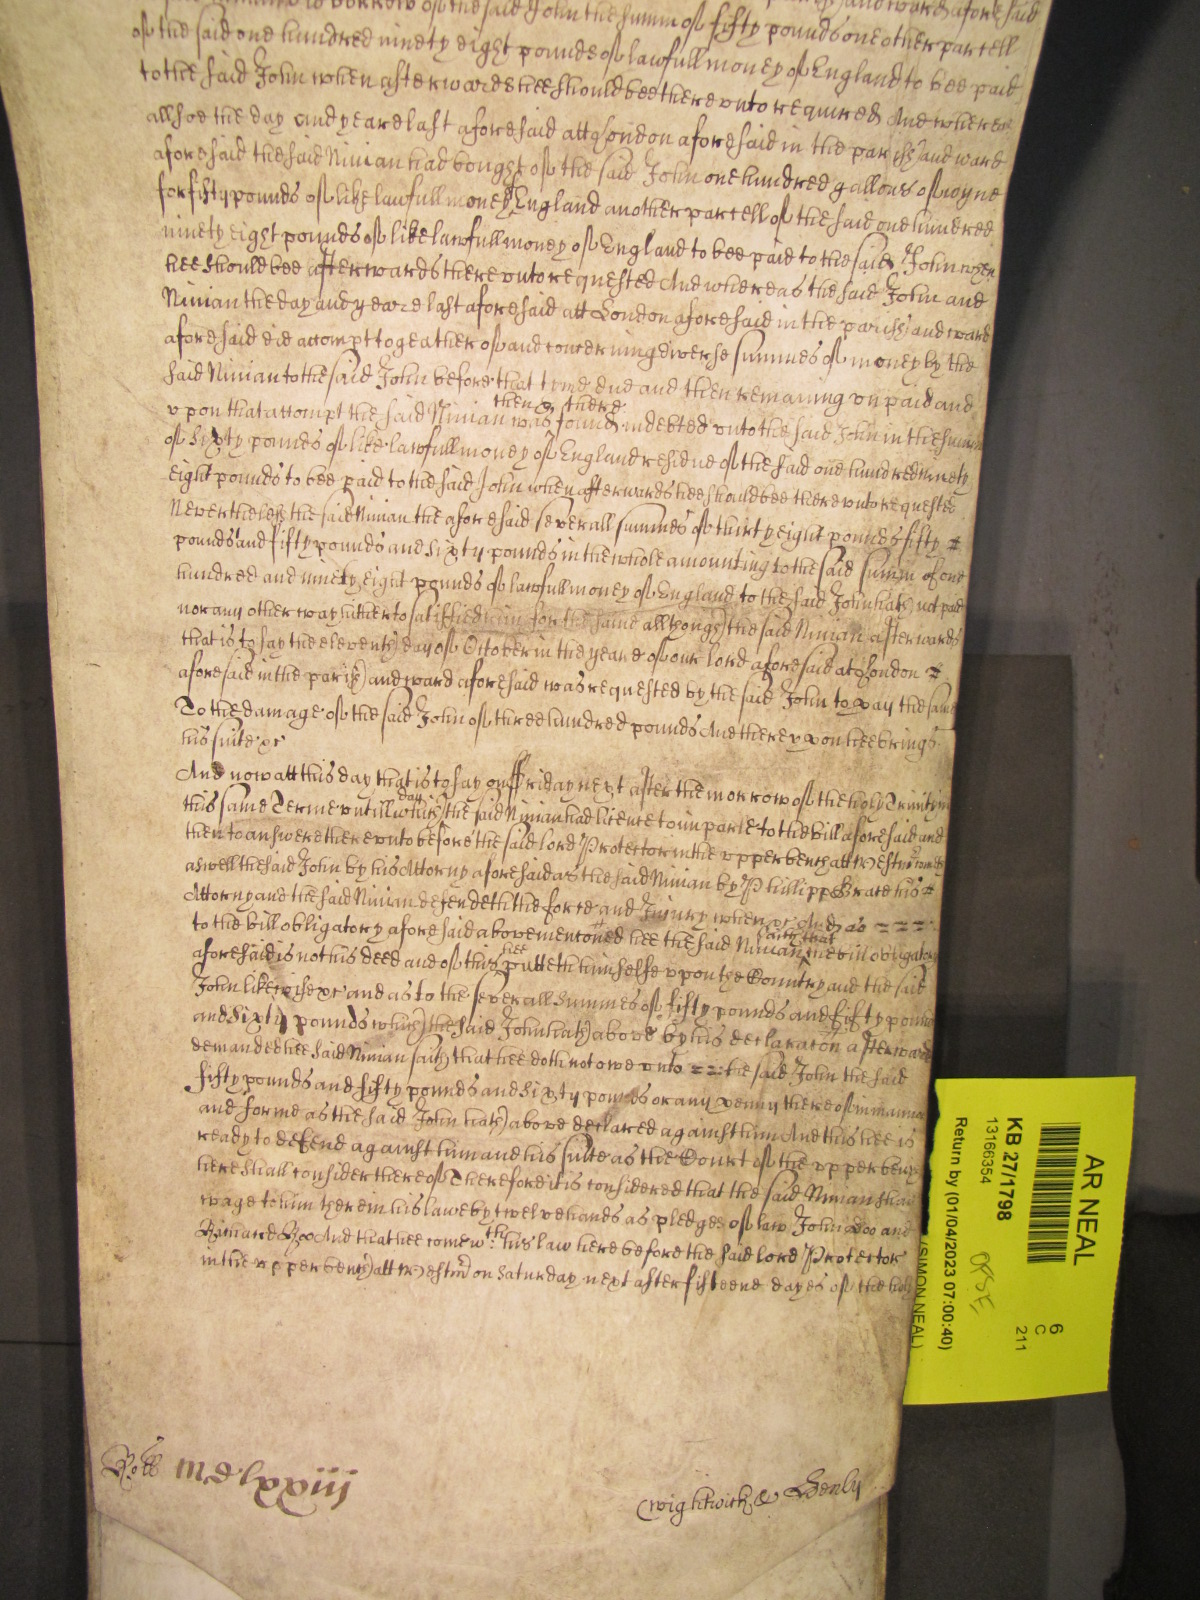 to borrow of the said John the summ of fifty pounds one other parcell
of the said one hundred ninety eight pounds of lawfull money of England to bee paid
to the said John when afterwards hee should bee thereunto required And whereas
allsoe the day and yeare last aforesaid att London aforesaid in the parish and ward
aforesaid the said Ninian had bought of the said John one hundred gallons of wyne
for fifty pounds of like lawfull money of England another parcell of the said one hundred
ninety eight pounds of like lawfull money of England to bee paid to the said John when
hee should bee afterwards thereunto requested And whereas the said John and
Ninian the day and yeare last aforesaid att London aforesaid in the parish and ward
aforesaid did accompt togeather of and concerning diverse summes of money by the
said Ninian to the said John before that time due and then remaining unpaid and
upon that accompt the said Ninian was then & there found indebted unto the said John in the summ
of sixty pounds of like lawfull money of England residue of the said one hundred ninety
eight pounds to bee paid to the said John when afterwards hee should bee thereunto requested
Neverthelesse the said Ninian the aforesaid severall summes of thirty eight pounds fifty
pounds and fifty pounds and sixty pounds in the whole amounting to the said summ of one
hundred and ninety eight pounds of lawfull money of England to the said John hath not paid
nor any other way hitherto satisfied him for the same allthough the said Ninian afterwards
that is to say the eleventh day of October in the yeare of our lord aforesaid at London
aforesaid in the parish and ward aforesaid was requested by the said John to pay the same
To the damage of the said John of three hundred pounds And thereupon hee brings
his suite &c
And now att this day that is to say on Ffriday next after the morrow of the holy Trinity in
this same Terme untill which day the said Ninian had licence to imparle to the bill aforesaid and
then to answere thereunto before the said lord Protector in the upper bench att Westm comes
aswell the said John by his Attorny aforesaid as the said Ninian by Phillipp Brace his
Attorny and the said Ninian defendeth the force and Injury when &c And as
to the bill obligatory aforesaid above mentoned hee the said Ninian saith that the bill obligatory
aforesaid is not his deed and of this hee putteth himselfe upon the Country and the said
John likewise &c and as to the severall summes of fifty pounds and fifty pounds
and sixty pounds which the said John hath above by his declaraton afterward
demanded hee said Ninian saith that hee doth not owe unto the said John the said
fifty pounds and fifty pounds and sixty pounds or any penny thereof in manner
and forme as the said John hath above declared against him And this hee is
ready to defend against him and his suite as the Court of the upper bench
here shall consider thereof Therefore it is considered that the said Ninian shall
wage to him therein his lawe by twelve hands as pledges of law John Doo and
Richard Roo And that hee come wth his law here before the said lord Protector
in the upper bench att Westm on Saturday next after fifteene dayes of the holy
Rott mdclxxiii
Wightwick & Henly
AR NEAL
KB 27/1798
13166354
Return by (01/04/2023 07:00:40)
(SIMON NEAL)
6
C
211